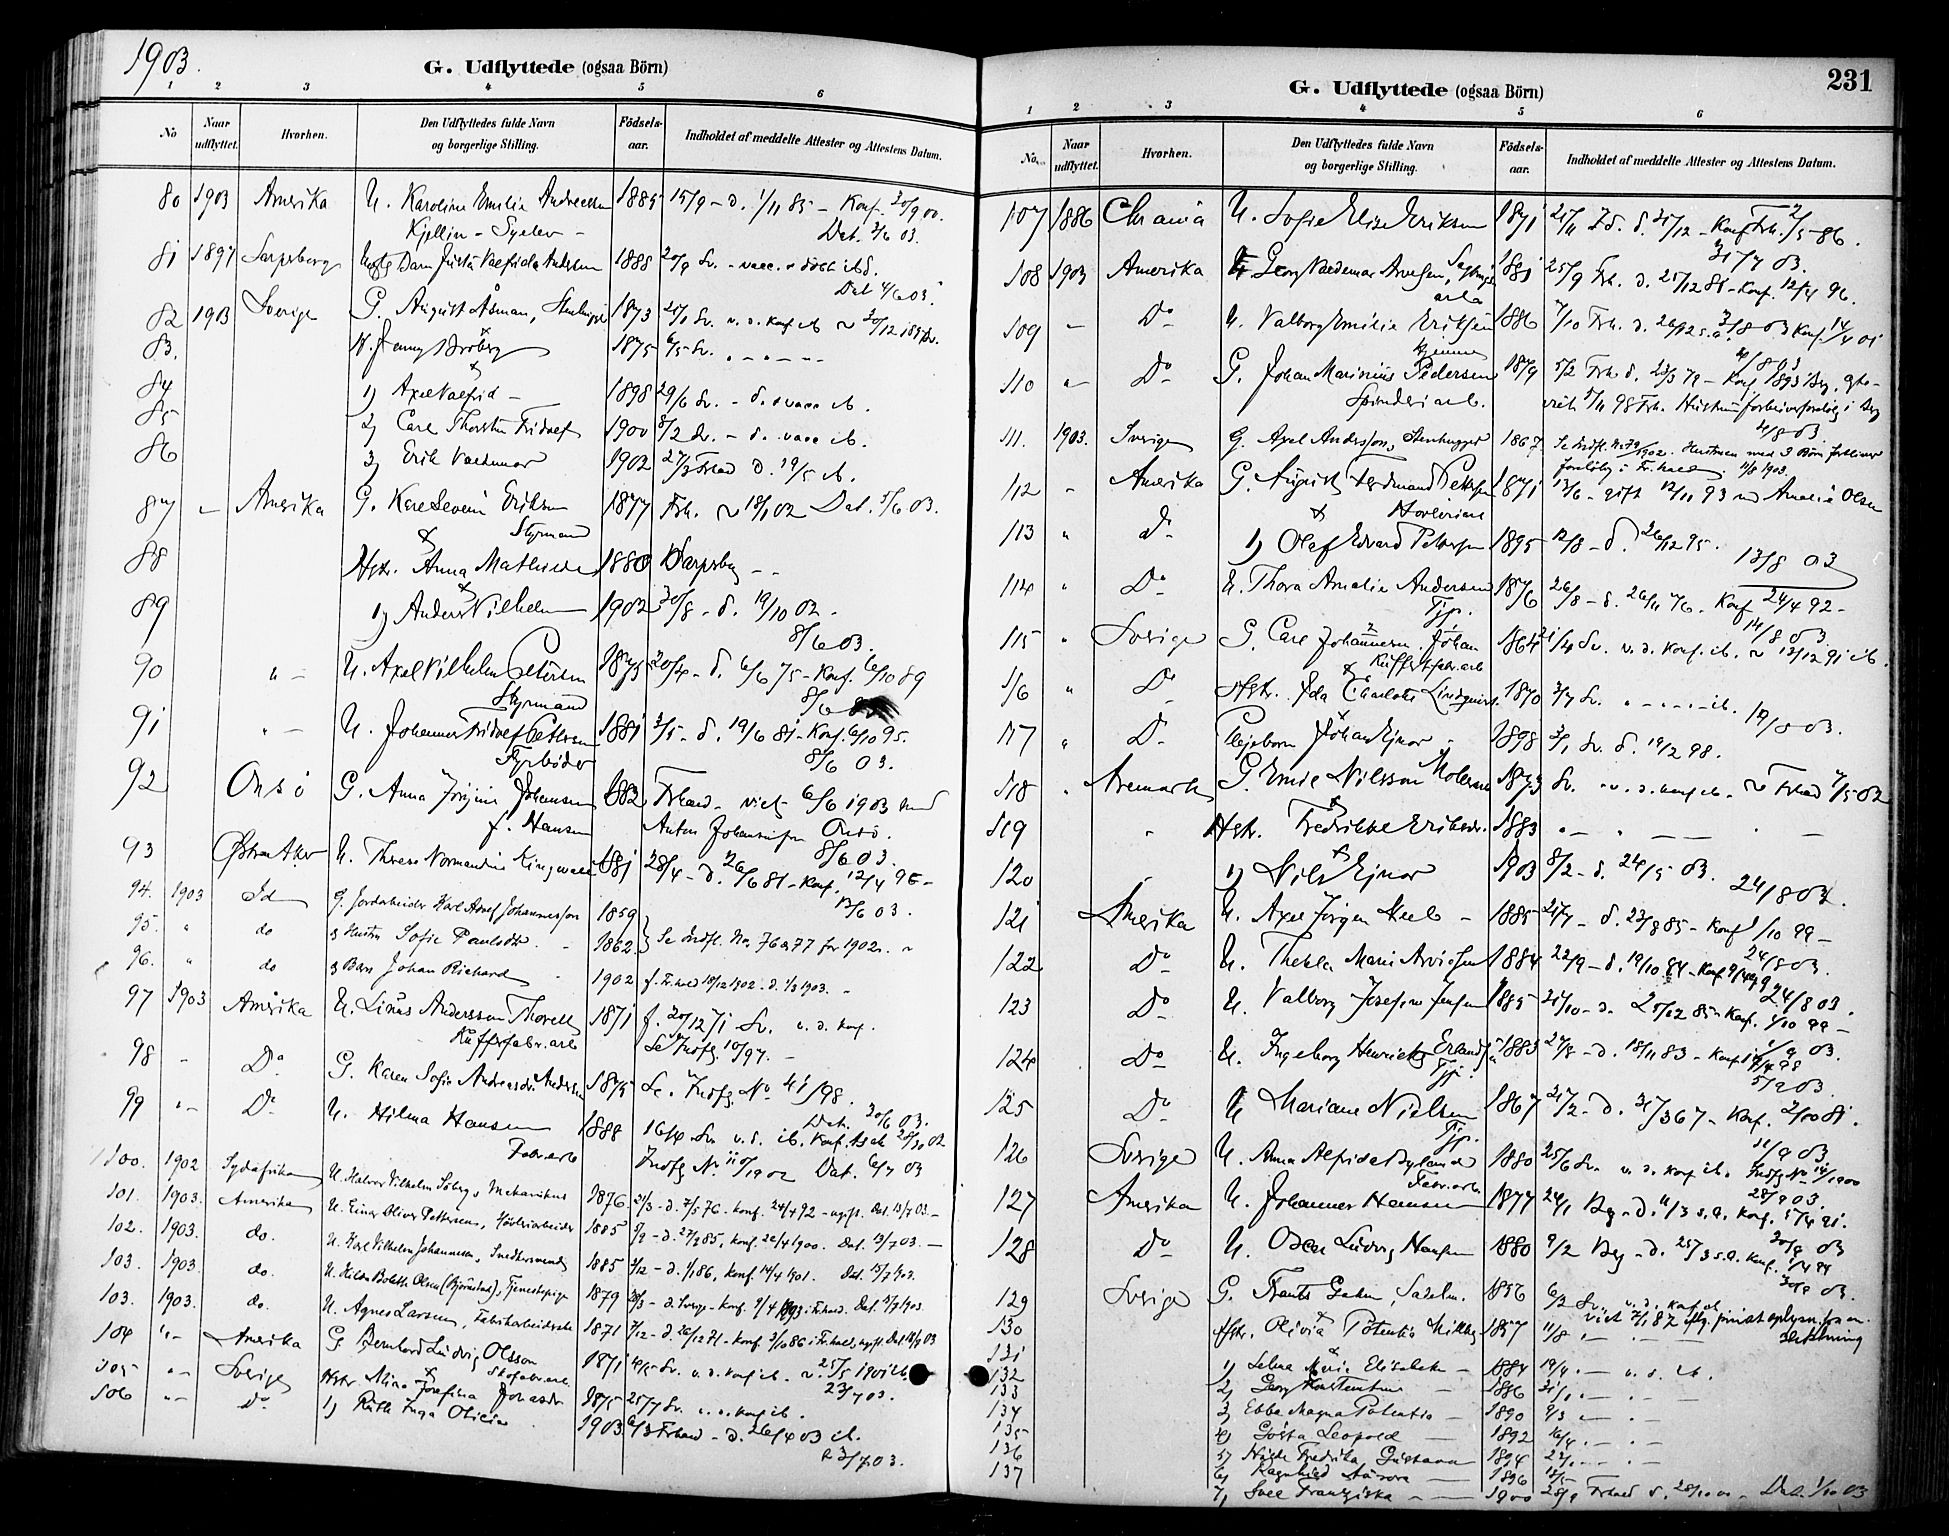 1903.
G. Udflyttede (ogsaa Börn)
1 2 3 4 5 6
No
Naar udflyttet.
Hvorhen.
Den Udflyttedes fulde Navn og borgerlige Stilling.
Födsels-aar.
Indholdet af meddelte Attester og Attestens Datum.
80 1903 Amerika U. Karoline Emilie 1885 15/9 – d. 1/11 85 – Konf. 30/9 00.
Kjellin – Dat. 3/6 03.
81 1897 Sarpsborg 1888 20/9 Sv. – vacc. ibd.
Dat 4/6 03.
82 1903 Sverige G. August Åsman, 1873 Sv. v. d. Konf ib
83. H. Jenny Broberg 1875 6/5 Sv.
84 1) Axel Valfrid – 1898 29/6 Sv. – d. vacc ib.
85 2) Carl Thorsten Fridolf 1900 8/2 Sv. – d. vacc ib.
86 3) Erik Valdemar 1902 27/3 Frhald d. 19/5 ib.
87 – Amerika G. Kare Severin Eriksen 1877 Frh. 18/1 02 Dat. 5/6 03.
Styrmand
88 Hstr. Anna Mathilde 1880 Sarpsborg – –
89 1) Anders Vilhelm 1902 30/8 – d. 19/10 02.
8/6 03.
90 " – U. Axel Vilhelm Petersen 1875 20/4 – d. 6/6 75 – Konf. 6/10 89
Styrmand 8/6
91 " – U. Johannes Fridolf Pettersen 1881 3/5 – d. 19/6 81 – Konf. 6/10 95.
Fyrbøder 8/6 03.
92 Onsö G. Anna Johansen 1882 Frhald – viet 6/6 1903 med
f. Hansen Anton Johansen fra Onsö.
8/6 03.
93 Østre Aker U. Therese Normandin 1881 28/4 – d. 26/6 81 – Konf. 12/4 96 –
13/6 03.
94. 1903 Id G. Jordarbeider Karl Adolf Johannesson 1859
95. " do Hustru Sofie Paulsdtr. 1862. Se Indfl. No. 76 & 77 for 1902.
96. " do Barn Johan Richard 1902 f. Frhald 18/12 1902. d. 1/3 1903.
97 1903 Amerika U. Linus Andersson Thorell 1871 f. 20/12 71 Sv. v. d. konf.
Kuffertfabr. arb Se Indfl. 10/97. –
98 – Do G. Karen Sofie Andreasdr. Andersen 1875 Se. Indfl. No 41/98.
Dat. 30/6 03.
99 " – Do U. Hilma Hansen 1888 16/4 Sv. v. d. ib. Konf.
Fabr. arb Indfl No 11/1902 Dat. 6/7 03
100. 1902 Sydafrika U. Halvor Vilhelm Söberg, Mekanikus 1876 21/3 – d. 7/5 76 – Konf. 24/4 92 – ugift. Dat. 13/7 03. –
101. 1903. Amerika U. Einar Oliver Pettersen, Hövleriarbeider 1885 d. 27/9 85, konf. 22/4 1900. Dat. 13/7 03. –
102. 1903. do. U. Karl Vilhelm Johannesen, Snedkersvend 1885 3/12 – d. 1/1 86, Konf. 14/4 1901. Dat. 15/7 1903.
103. 1903. do. U. Hilda Bolette Olsen (Bjørnstad), Tjenestepige 1879 d. Sverge – Konf. 9/4 i Frhald. Dat. 1903.
103. 1903. do. U. Agnes Larsen, Fabrikarbeiderske 1871 7/12 – d. 26/12 71 – Konf. 3/10 86 i Frhald, ugift. Dat. 03
104 " – Amerika G. Bernhard Ludvig Olsson 1871 Sv. v. d. konf ib. – 25/5 1901 ib.
Skofabr. arb. 23/7 03.
105 " – Sverige Hstr. Alina Josefina Jonasdr 1875 25/7 Sv. konf ib.
106 " – Do 1) Ruth Inga Olivia 1903 6/3 Frhald – d. 26/4 03 ib.
23/7 03.
231
G. Udflyttede (ogsaa Börn)
1 2 3 4 5 6
No.
Naar udflyttet.
Hvorhen.
Den Udflyttedes fulde Navn og borgerlige Stilling.
Födsels-aar.
Indholdet af meddelte Attester og Attestens Datum.
107 1886 Chrania U. Sofie Elise Eriksen 1871 21/11 Id. d. 25/12 – Konf Frh. 2/5 86.
31/7 03.
108 1903 Amerika G. Georg Valdemar Arvesen, 1881 25/9 Frh. d. 25/12 81 – Konf. 12/4 96.
arb
109 – Do U. Valborg Emilie Eriksen 1886 7/10 Frh. d. 26/12 s.a. 3/8 03 Konf. 14/4 01
hjemme 4/8 03
110 " – Do G. Johan Marinius Pedersen 1879 5/2 Frh d. 23/3 79 – Konf 1893 i Bg.
Spinderiarb. 98 Frh. Hustru forbliver foreløbig i Bg
4/8 03.
111. 1903. Sverige G. Axel Andersson, Stenhugger 1867. Se Indfl. No 79/1902. Hustruen med 3 Börn forbliver
foreløbig i Frhald. 11/8 1903.
112 – Amerika G. August Ferdinand Petersen 1871 13/6 – gift 12/11 93 med Amalie Olsen
Høvleriarb
113 " do 1) Olaf Edvard Petersen 1895 12/8 – d. 26/12 95.
13/8 03
114 " Do U. Thora Amalie Andersen 1876 26/8 – d. 26/11 76. Konf 24/4 92 –
Tjp. 14/8 03.
115 " Sverige G. Carl Johannesen Johan 1864 21/4 Sv. v. d. Konf. ib. 12/12 91 ib.
Kuffertfabr. arb
116 " Do Hstr. Ida Charlotte Lindquist. 1870 3/7 Sv. – – – – ib.
17/8 03.
117 " Do Plejebarn Johan Ejnar – 1898 3/1 Sv. d. 19/2 98.
118 . Aremark G. Emil Nilsson 1873 Sv. – v. d. konf ib. Frhald 4/5 02
119 – Hstr. Fredrikke Eriksdr. 1883 " – " – – –
120 – 1) Nils Ejnar 1903 8/2 – d. 24/5 03.
24/8 03.
121 Amerika U. Axel Jörgen – 1885 21/7 – d. 23/8 85 – Konf 1/10 99 –
24/8 03.
122 Do U. Thekla Marie Arvidsen 1884 22/9 – d. 19/10 84 – Konf. 9/4 99
24/8 03.
123 Do U. Valborg Josefine Jensen 1885 21/10 – d. 25/12 85 – Konf. 1/10 99 –
1/9 03.
124 Do U. Ingeborg Henriette 1883 27/8 – d. 18/11 83 – Konf 17/4 98
Tjp. 5/9 03.
125 Do U. Mariane Nielsen 1867 21/2 – d. 31/3 67 – Konf. 2/10 81.
Tjp. 11/9 03
126 Sverige U. Anna Alfrida Bylund 1880 25/6 Sv. v. d. konf ib. Indfl No 14/1900
Fabr. arb. 28/9 03.
127 Amerika U. Johannes Hansen 1877 24/1 Bg – d. 11/3 s.a. Konf. 5/4 91.
30/9 03
128 Do U. Oskar Ludvig Hansen 1880 9/2 Bg – d. 25/3 s.a. Konf.
30/9 03.
129 Sverige G. Frants Gahn, Sadelm. 1856 6/2 Sv. v. d. Konf ib.
viet 7/1 87
130 Hstr. Olivia Potentia 1857 11/8 " –
131
132 1) Selma Marie Elisabeth – 1884 19/4 – v. d. ib.
133 2) Georg Konstantin – 1886 31/1 – . –
134 3) Ebba Magna Potentia – 1890 9/3 – . –
135 4) Gösta Leopold – 1892 16/4 – . –
136 5) Fredrika Gustava 1894 22/1 – . –
137 6) Ragnhild Aurora – 1896 13/5 –
7) Svea Franziska – 1900 28/9 Frhald d. 28/10 00 – Dat. 1/10 03